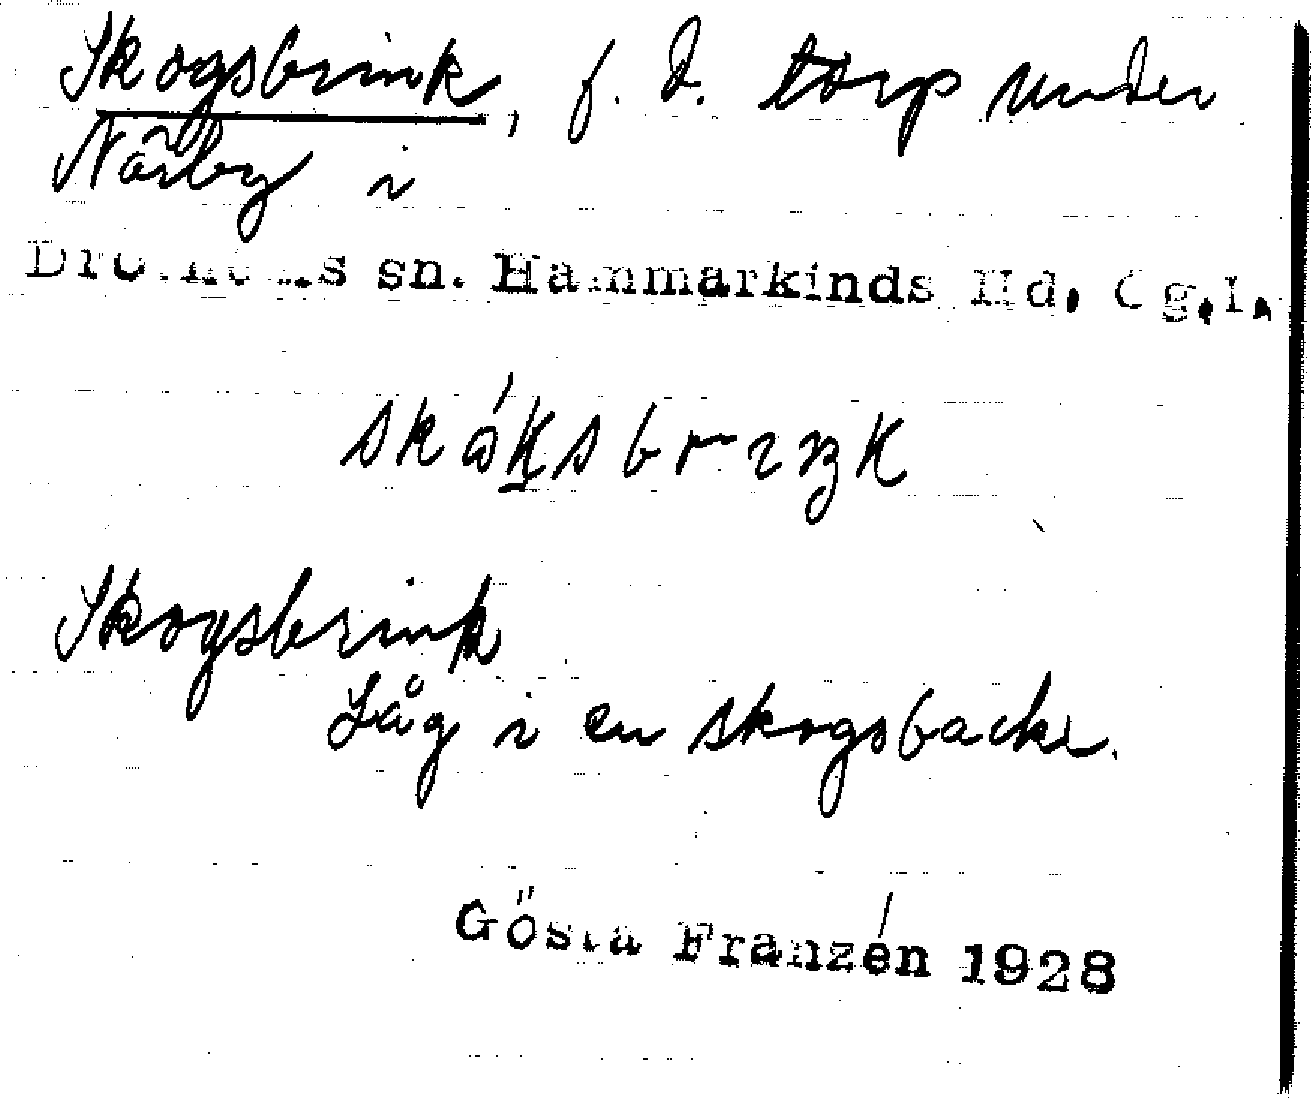 Skogsbrink, f. d. torp under
Närby i
Drothems sn. Hammarkinds Hd, Ög.l.
skåksbrıŋk
Skogsbrink
Låg i en skogsbacke.
Gösta Franzén 1928